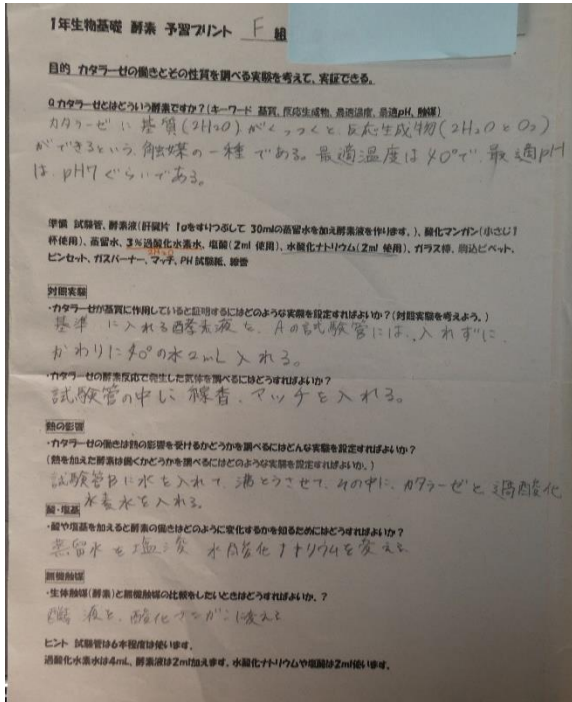 1年生物基礎 酵素 予習プリント F 組
目的 カタラーゼの働きとその性質を調べる実験を考えて、実証できる。
Q カタラーゼとはどういう酵素ですか?(キーワード 基質、反応生成物、最適温度、最適pH、触媒)
カタラーゼに基質(2H2O)がくっつくと、反応生成物(2H2OとO2)
ができるという、触媒の一種である。最適温度は40°で、最適pH
は、pH7ぐらいである。
準備 試験管、酵素液(肝臓片 1gをすりつぶして 30mlの蒸留水を加え酵素液を作ります。)、酸化マンガン(小さじ1
杯使用)、蒸留水、3%過酸化水素水、塩酸(2ml 使用)、水酸化ナトリウム(2ml 使用)、ガラス棒、駒込ピペット、
ピンセット、ガスバーナー、マッチ、PH試験紙、線香
対照実験
・カタラーゼが基質に作用していると証明するにはどのような実験を設定すればよいか?(対照実験を考えよう。)
基準に入れる酵素液を、Aの試験管には、入れずに、
かわりに40°の水2mL入れる。
・カタラーゼの酵素反応で発生した気体を調べるにはどうすればよいか?
試験管の中に線香、マッチを入れる。
熱の影響
・カタラーゼの働きは熱の影響を受けるかどうかを調べるにはどんな実験を設定すればよいか?
(熱を加えた酵素は働くかどうかを調べるにはどのような実験を設定すればよいか。)
試験管Bに水を入れて、沸とうさせて、その中に、カタラーゼと過酸化
水素水を入れる。
酸・塩基
・酸や塩基を加えると酵素の働きはどのように変化するかを知るためにはどうすればよいか?
蒸留水を塩酸 水酸化ナトリウムを変える
無機触媒
・生体触媒(酵素)と無機触媒の比較をしたいときはどうすればよいか。?
液を、酸化マンガンに変える
ヒント 試験管は6本程度は使います。
過酸化水素水は4mL、酵素液は2ml加えます。水酸化ナトリウムや塩酸は2ml使います。